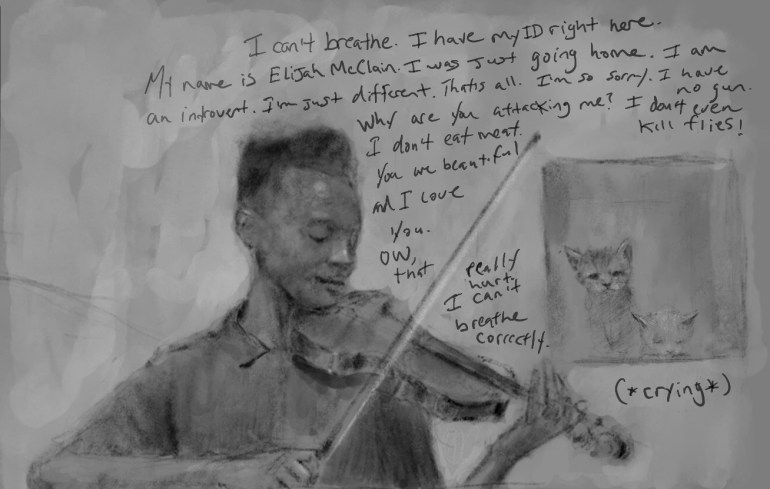 I can't breathe. I have my ID right here.
My name is Elijah McClain. I was just going home. I am
an introvert. I'm just different. That's all. I'm so sorry. I have
no gun.
Why are you attacking me? I don't even
kill flies!
I don't eat meat.
You are beautiful
and I love
you.
OW,
that
really
hurt.
I can't
breathe
correctly.
(*crying*)